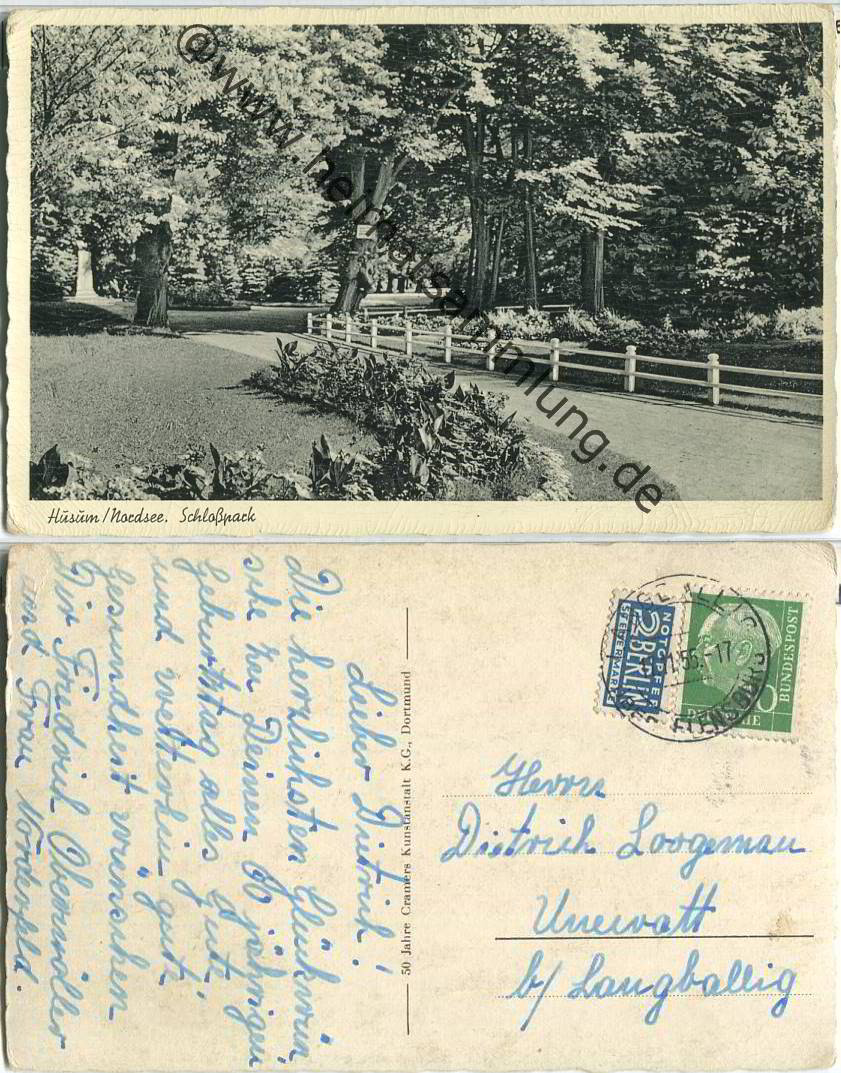 @www.heimatsammlung.de
Husum/Nordsee. Schloßpark
Lieber Dietrich!
Die herzlichsten Glückwün
sche zu Deinem jährigen
Geburtstag alles Gute,
und weiterhin gute
Gesundheit wünschen
Dir Friedrich Obermöller
und Frau Nordenfeld.
50 Jahre Cramers Kunstanstalt K.G., Dortmund
NOTOPFER
2 BERLIN
STEUERMARKE
BUNDESPOST
FLENSBURG
Herrn
Dietrich Loogeman
Unewatt
b/ Langballig